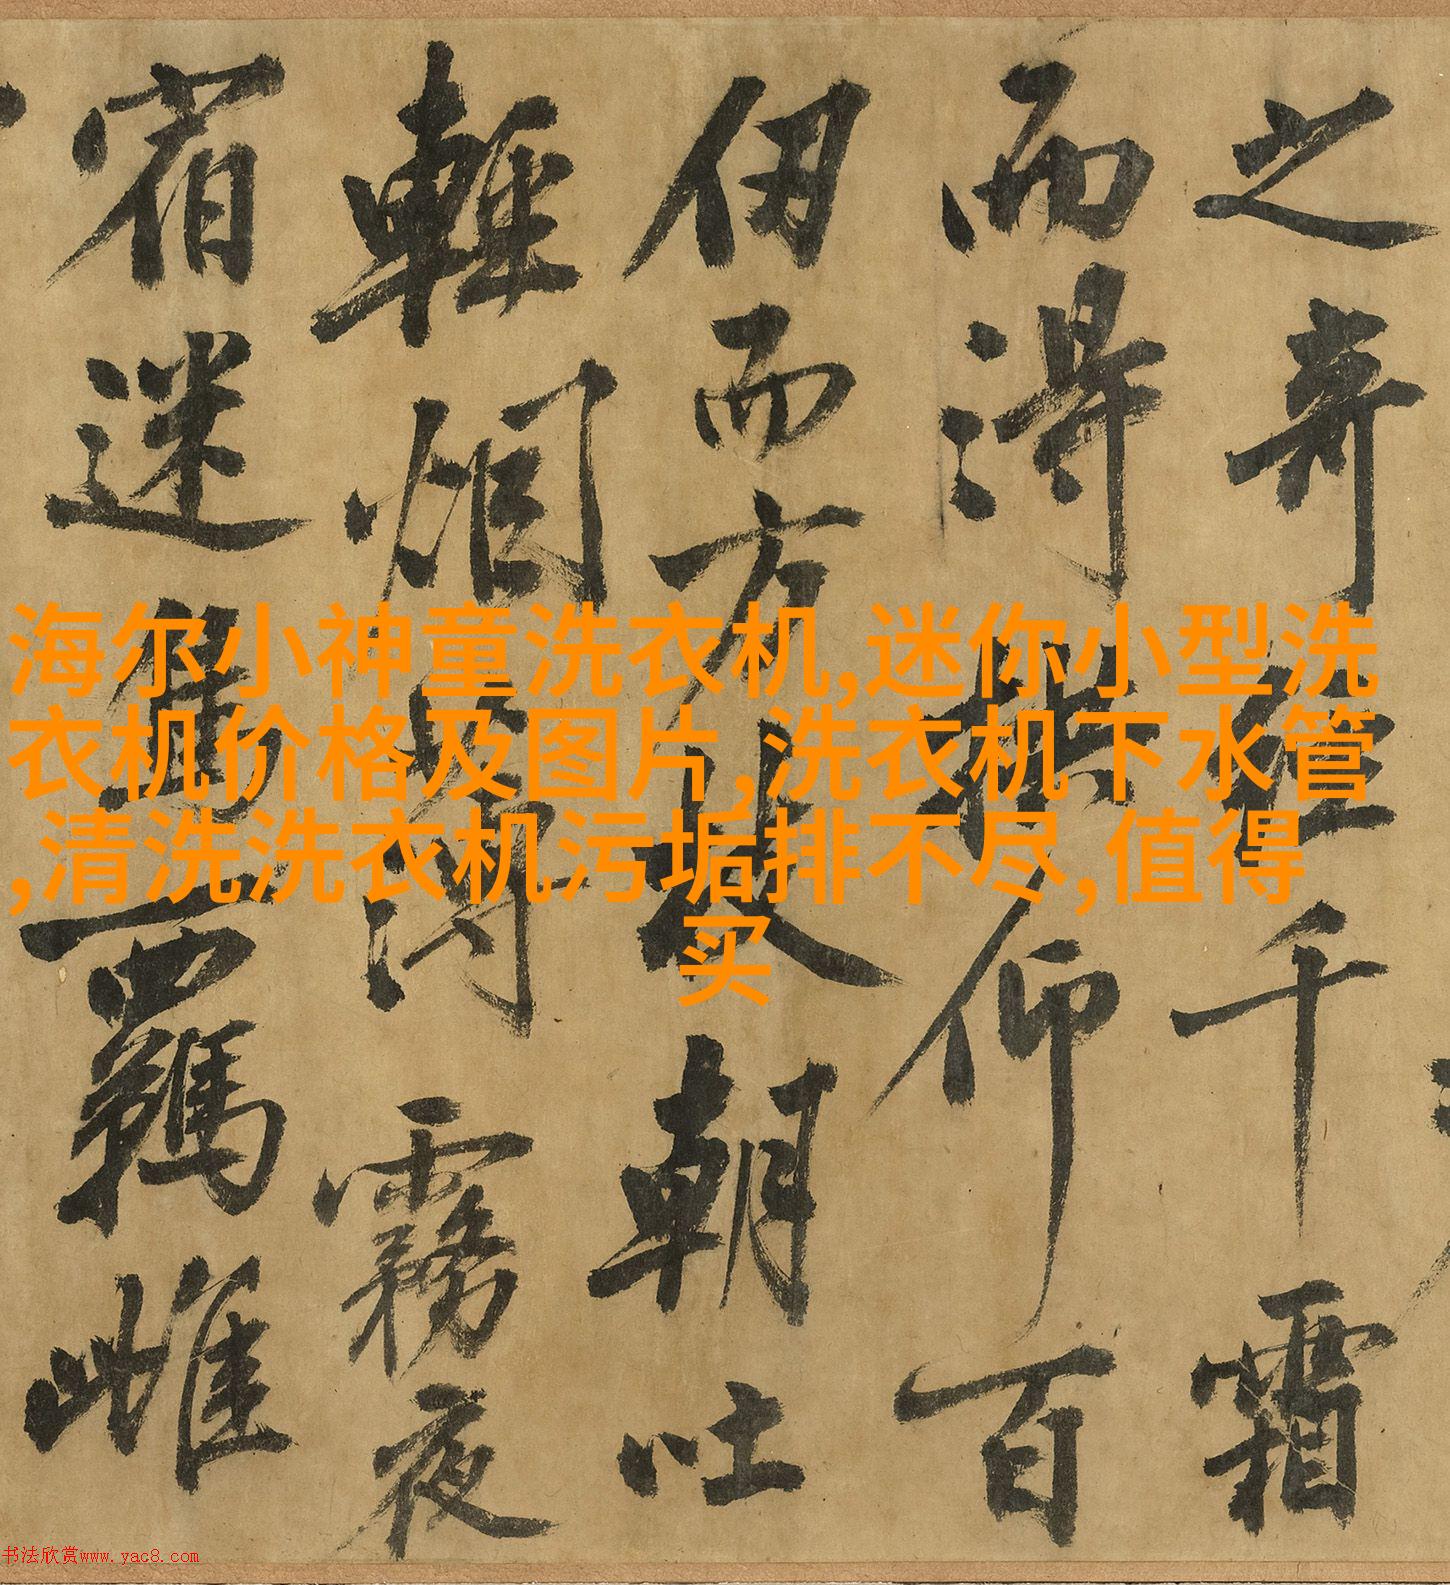 海尔小神童洗衣机,迷你小型洗
衣机价格及图片,洗衣机下水管
,清洗洗衣机污垢排不尽,值得
买
之奇經千霜
而得拱仰百
仞而方枝朝吐
輕烟薄霧夜
宿迷鳥羈雌
书法欣赏www.yac8.com